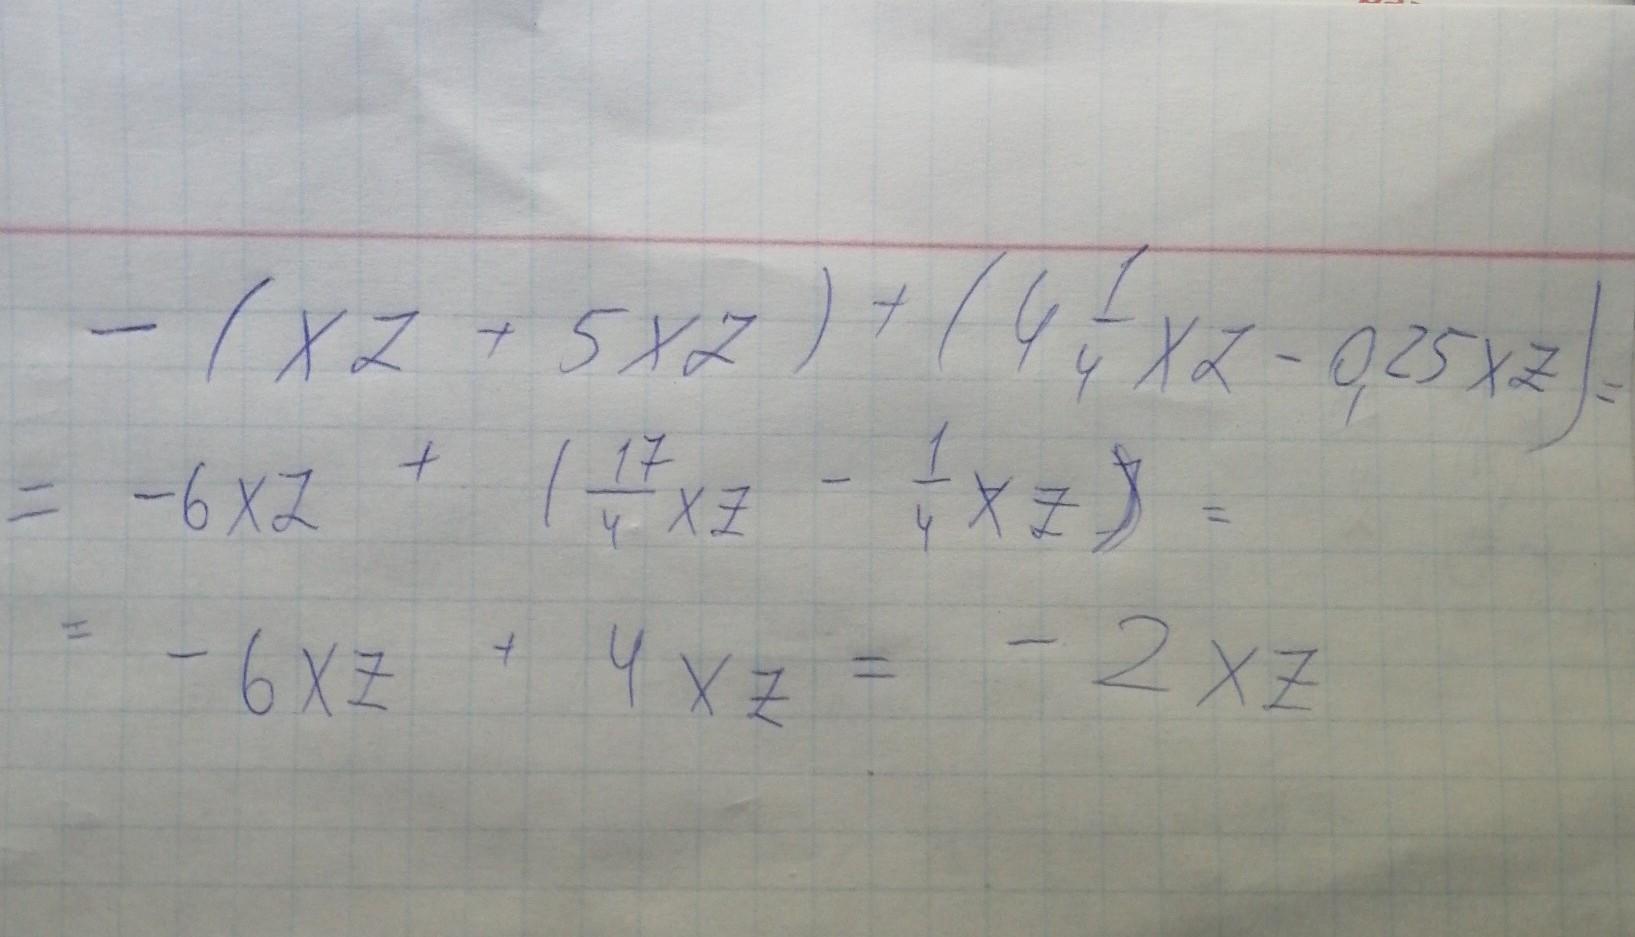 - ( xz + 5xz ) + ( 4 1/4 xz - 0,25xz ) =
= -6xz + ( 17/4 xz - 1/4 xz ) =
= - 6xz + 4 xz = - 2xz